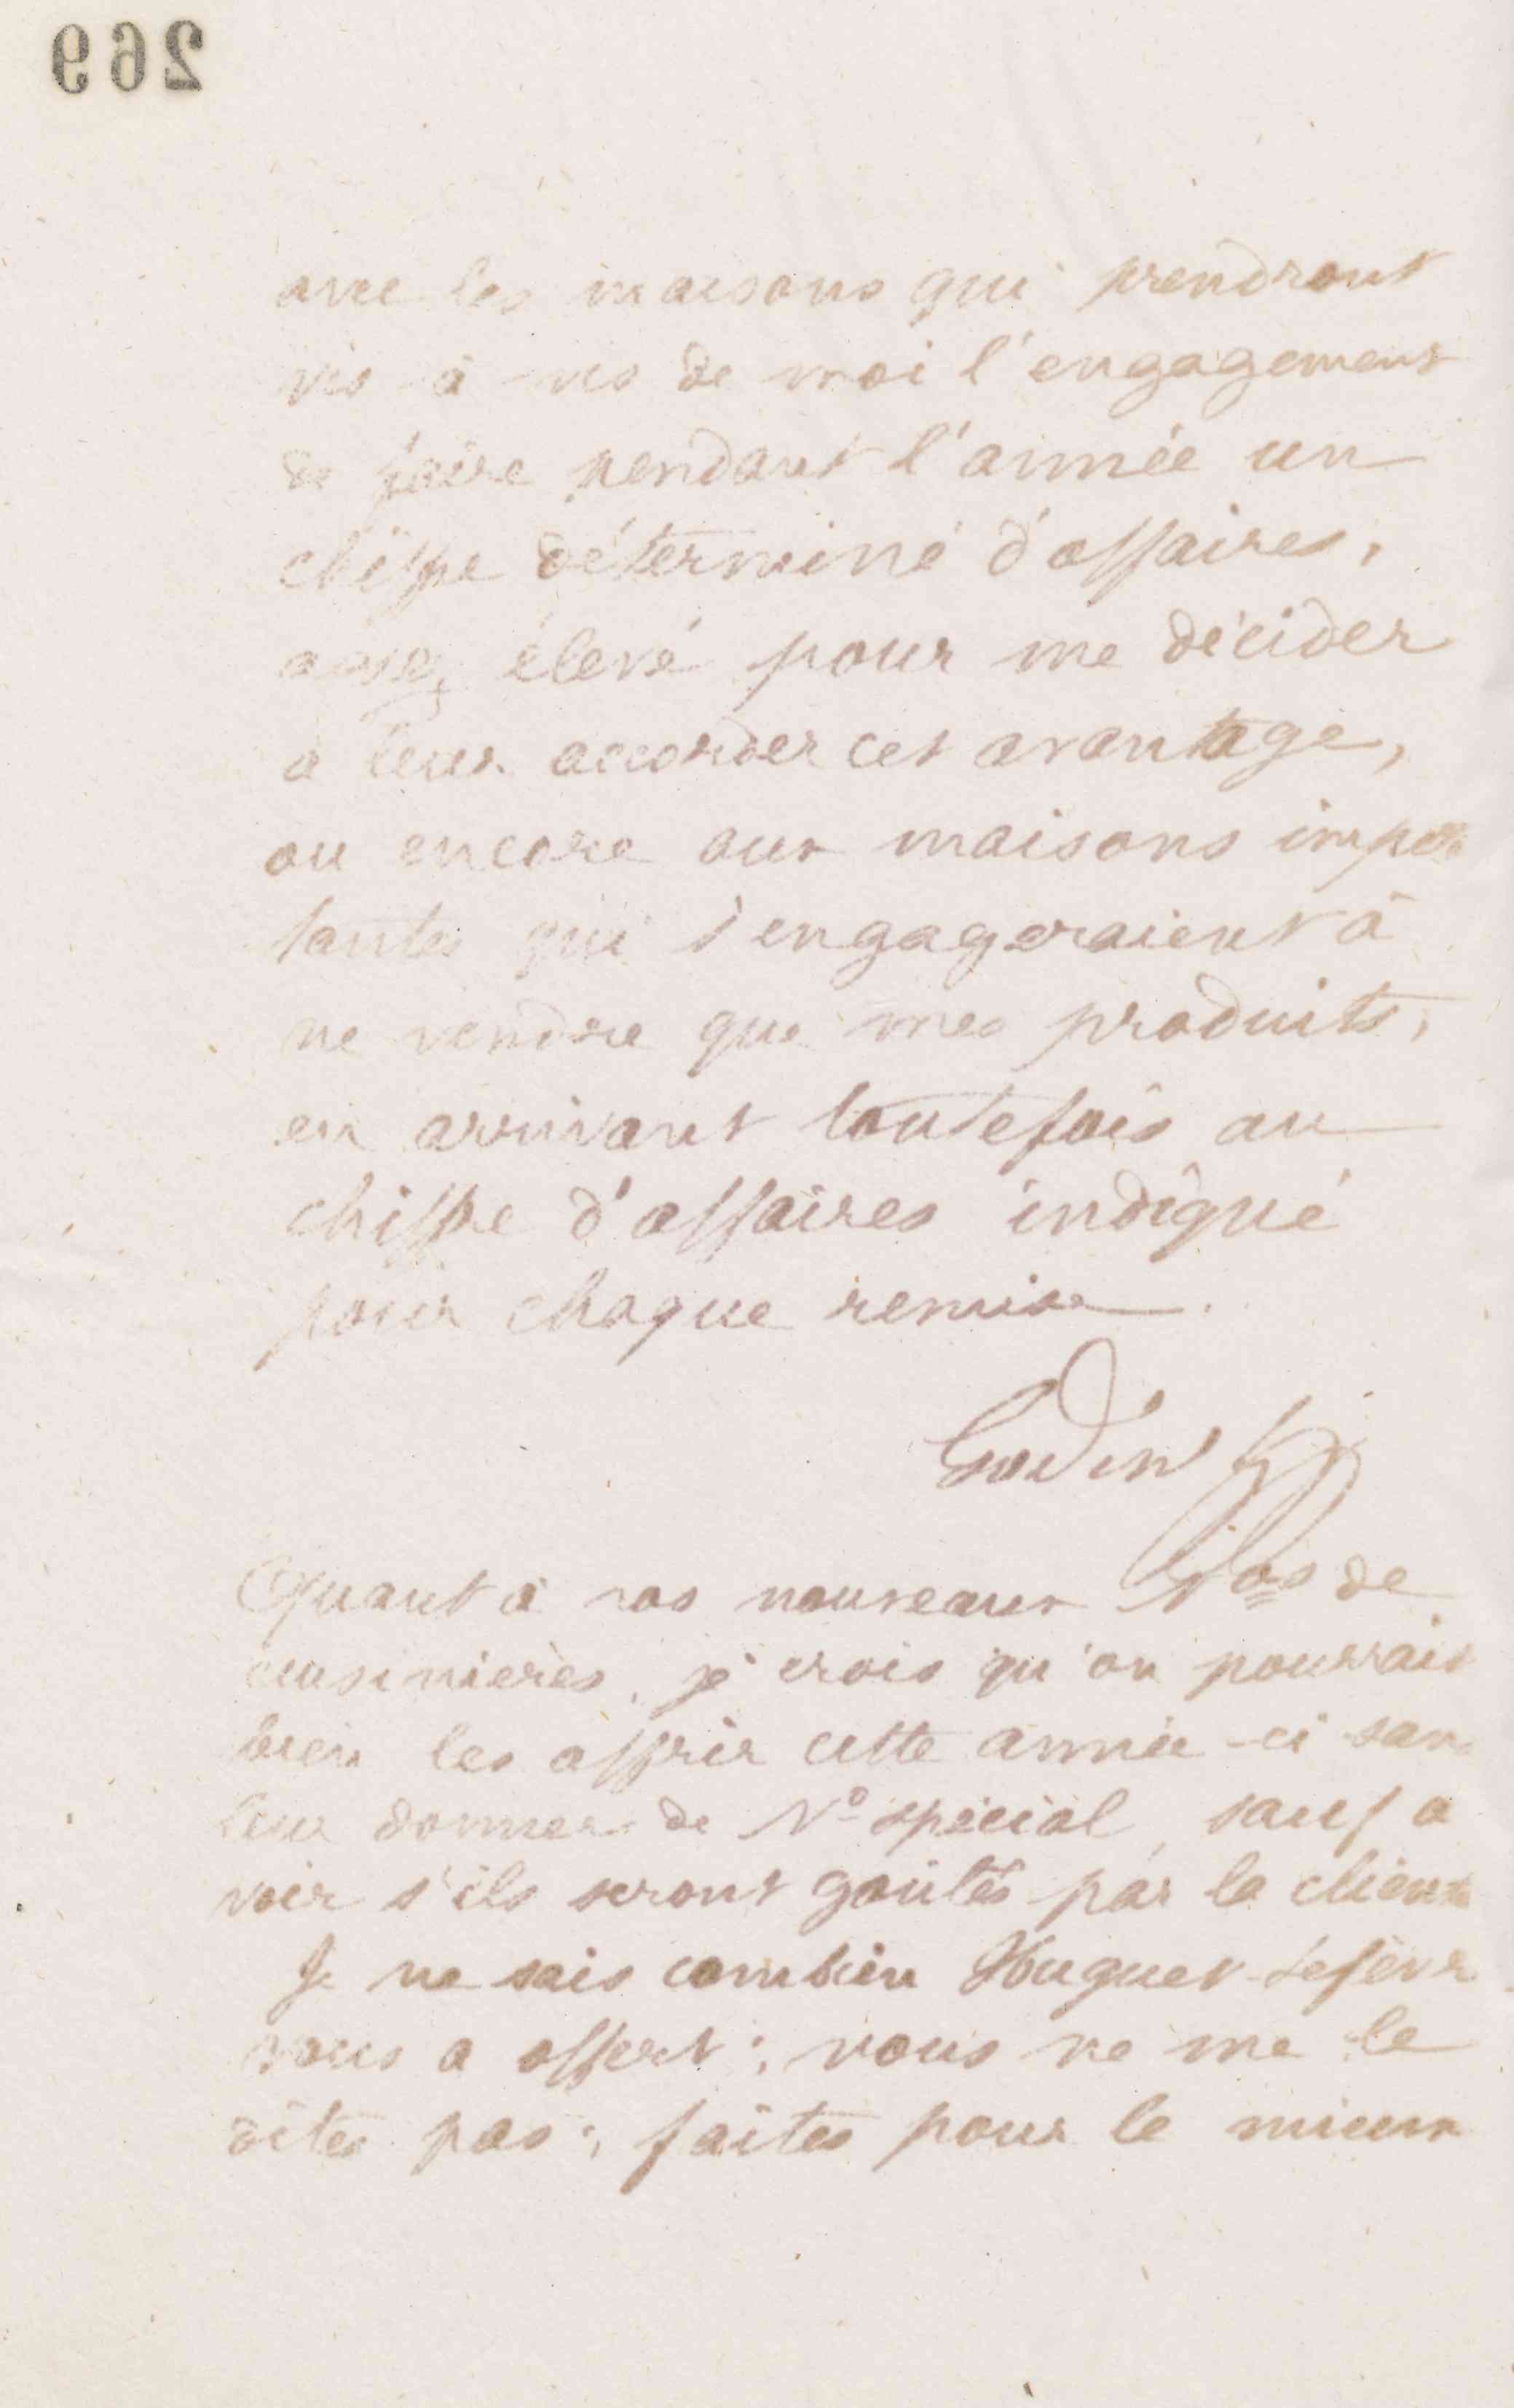 269
avec les maisons qui prendront
vis à vis de moi l'engagement
de faire pendant l'année un
chiffre déterminé d'affaires,
assez élevé pour me décider
à leur accorder cet avantage,
ou encore aux maisons impor
tantes qui s'engageraient à
ne vendre que mes produits,
en arrivant toutefois au
chiffre d'affaires indiqué
pour chaque remise.
Godin
Quant à vos nouveaux Nos de
cuisinières, je crois qu'on pourrait
bien les offrir cette année-ci sans
leur donner de No spécial, sauf à
voir s'ils seront goûtés par la
Je ne sais combien Huguet-Lefèvre
vous a offert; vous ne me le
dites pas; faites pour le mieux